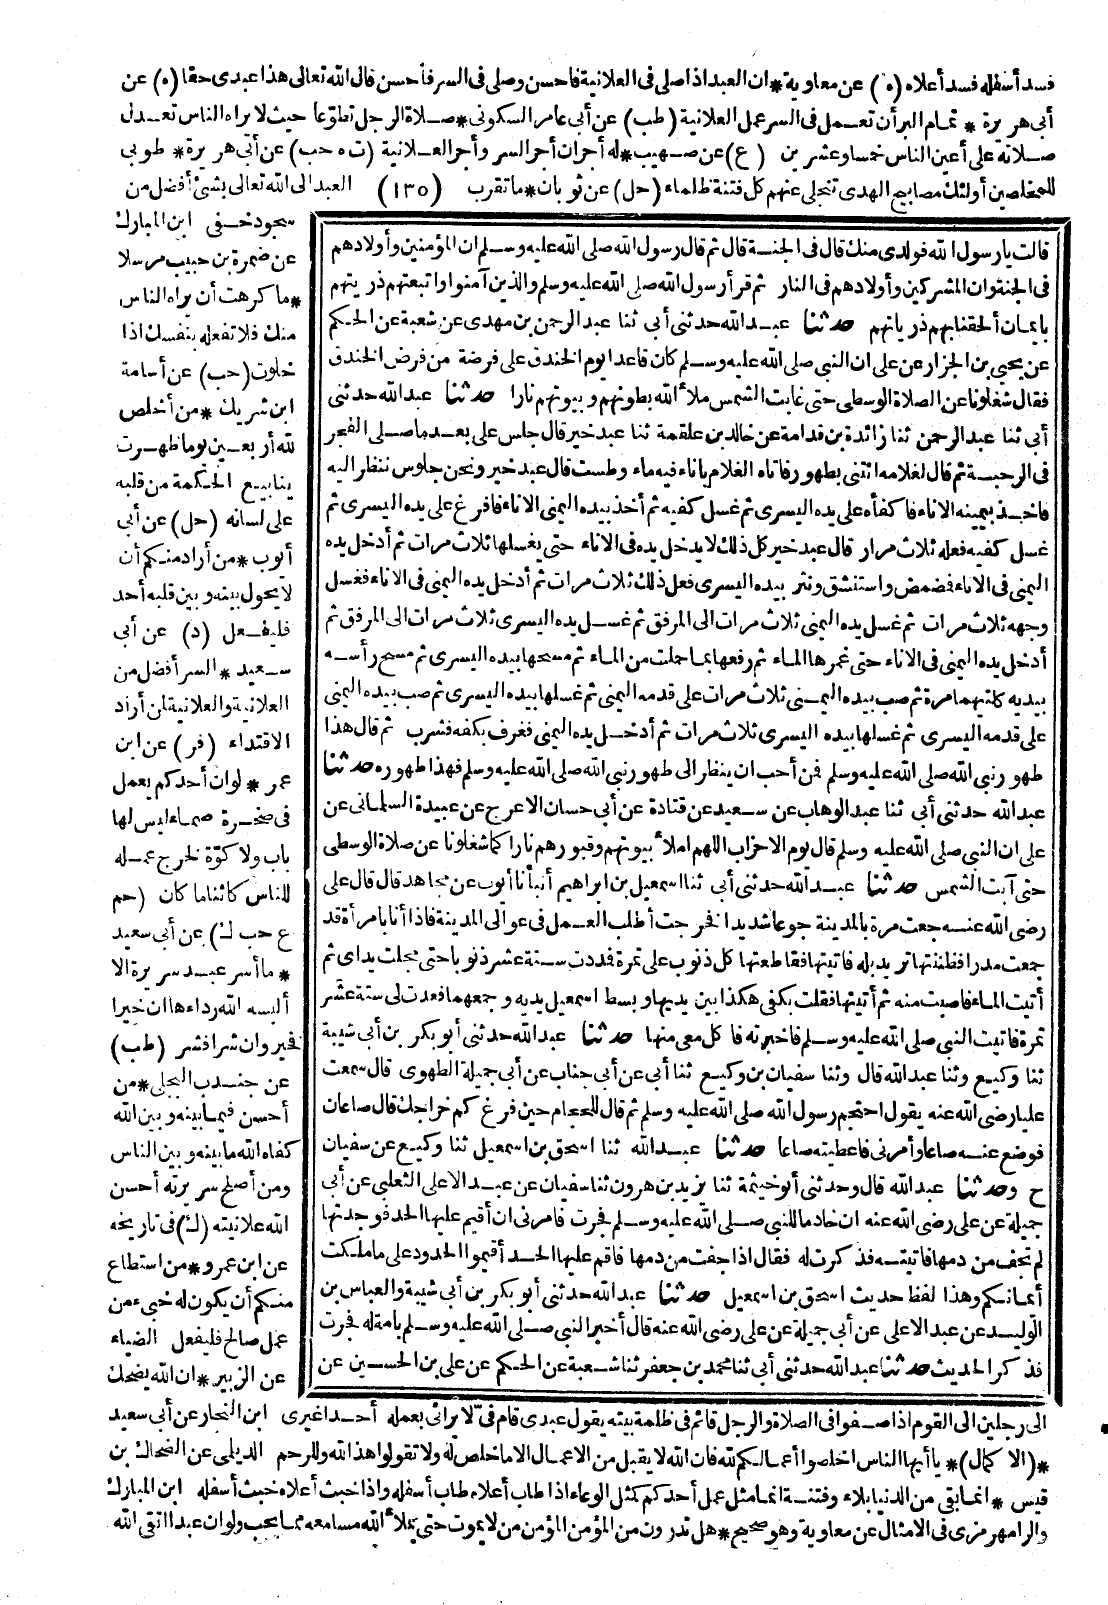 فسد أسفله فسد أعلاه (ه) عن معاوية * ان العبد اذا صلى فى العلانية فأحسن وصلى فى السر فأحسن قال الله تعالى هذا عبدى حقا (ه) عن
أبى هريرة * تمام البر أن تعمل فى السر عمل العلانية (طب) عن أبى عامر السكونى * صلاة الرجل تطوّعا حيث لا يراه الناس تعدل
صلاته على أعين الناس خمسا وعشرين (ع) عن صهيب * له أجران أجر السر وأجر العلانية (ت ه حب) عن أبى هريرة * طوبى
للمخلصين أولئك مصابيح الهدى تنجلى عنهم كل فتنة ظلماء (حل) عن ثوبان * ما تقرب (١٣٥) العبد الى الله تعالى بشئ أفضل من
سجود خفى ابن المبارك
عن ضمرة بن حبيب مرسلا
* ما كرهت أن يراه الناس
منك فلا تفعله بنفسك اذا
خلوت (حب) عن أسامة
ابن شريك * من أخلص
لله أربعين يوما ظهرت
ينابيع الحكمة من قلبه
على لسانه (حل) عن أبى
أيوب * من أراد منكم أن
لا يحول بينه وبين قلبه أحد
فليفعل (د) عن أبى
سعيد * السر أفضل من
العلانية والعلانية لمن أراد
الاقتداء (فر) عن ابن
عمر * لو ان أحدكم يعمل
فى صخرة صماء ليس لها
باب ولا كوّة لخرج عمله
للناس كائنا ما كان (حم
ع حب ك) عن أبى سعيد
* ما أسر عبد سريرة الا
ألبسه الله رداءها ان خيرا
فخير وان شرا فشر (طب)
عن جندب البجلى * من
أحسن فيما بينه وبين الله
كفاه الله ما بينه وبين الناس
ومن أصلح سريرته أحسن
الله علانيته (ك) فى تاريخه
عن ابن عمرو * من استطاع
منكم أن يكون له خبىء من
عمل صالح فليفعل الضياء
عن الزبير * ان الله يضحك
قالت يا رسول الله فولدى منك قال فى الجنة قال ثم قال رسول الله صلى الله عليه وسلم ان المؤمنين وأولادهم
فى الجنة وان المشركين وأولادهم فى النار ثم قرأ رسول الله صلى الله عليه وسلم والذين آمنوا واتبعتهم ذريتهم
بايمان ألحقنا بهم ذرياتهم حدثنا عبد الله حدثنى أبى ثنا عبد الرحمن بن مهدى عن شعبة عن الحكم
عن يحيى بن الجزار عن على ان النبى صلى الله عليه وسلم كان قاعدا يوم الخندق على فرضة من فرض الخندق
فقال شغلونا عن الصلاة الوسطى حتى غابت الشمس ملأ الله بطونهم وبيوتهم نارا حدثنا عبد الله حدثنى
أبى ثنا عبد الرحمن ثنا زائدة بن قدامة عن خالد بن علقمة ثنا عبد خير قال جلس على بعد ما صلى الفجر
فى الرحبة ثم قال لغلامه ائتنى بطهور فاتاه الغلام باناء فيه ماء وطست قال عبد خير ونحن جلوس ننظر اليه
فاخذ بيمينه الاناء فاكفأه على يده اليسرى ثم غسل كفيه ثم أخذ بيده اليمنى الاناء فافرغ على يده اليسرى ثم
غسل كفيه فعله ثلاث مرار قال عبد خير كل ذلك لا يدخل يده فى الاناء حتى يغسلها ثلاث مرات ثم أدخل يده
اليمنى فى الاناء فمضمض واستنشق ونثر بيده اليسرى فعل ذلك ثلاث مرات ثم أدخل يده اليمنى فى الاناء فغسل
وجهه ثلاث مرات ثم غسل يده اليمنى ثلاث مرات الى المرفق ثم غسل يده اليسرى ثلاث مرات الى المرفق ثم
أدخل يده اليمنى فى الاناء حتى غمرها الماء ثم رفعها بما حملت من الماء ثم مسحها بيده اليسرى ثم مسح رأسه
بيديه كلتيهما مرة ثم صب بيده اليمنى ثلاث مرات على قدمه اليمنى ثم غسلها بيده اليسرى ثم صب بيده اليمنى
على قدمه اليسرى ثم غسلها بيده اليسرى ثلاث مرات ثم أدخل يده اليمنى فغرف بكفه فشرب ثم قال هذا
طهور نبى الله صلى الله عليه وسلم فمن أحب ان ينظر الى طهور نبى الله صلى الله عليه وسلم فهذا طهوره حدثنا
عبد الله حدثنى أبى ثنا عبد الوهاب عن سعيد عن قتادة عن أبى حسان الاعرج عن عبيدة السلمانى عن
على ان النبى صلى الله عليه وسلم قال يوم الاحزاب اللهم املأ بيوتهم وقبورهم نارا كما شغلونا عن صلاة الوسطى
حتى آبت الشمس حدثنا عبد الله حدثنى أبى ثنا اسمعيل بن ابراهيم أنبأنا أيوب عن مجاهد قال قال على
رضى الله عنه جعت مرة بالمدينة جوعا شديدا فخرجت أطلب العمل فى عوالى المدينة فاذا أنا بامرأة قد
جمعت مدرا فظننتها تريد بله فاتيتها فقاطعتها كل ذنوب على تمرة فمددت ستة عشر ذنوبا حتى مجلت يداى ثم
أتيت الماء فاصبت منه ثم أتيتها فقلت بكفى هكذا بين يديها وبسط اسمعيل يديه وجمعهما فعدت لى ستة عشر
تمرة فاتيت النبى صلى الله عليه وسلم فاخبرته فاكل معى منها حدثنا عبد الله حدثنى أبو بكر بن أبى شيبة
ثنا وكيع وثنا عبد الله قال وثنا سفيان بن وكيع ثنا أبى عن أبى جناب عن أبى جميلة الطهوى قال سمعت
عليا رضى الله عنه يقول احتجم رسول الله صلى الله عليه وسلم ثم قال للحجام حين فرغ كم خراجك قال صاعان
فوضع عنه صاعا وأمرنى فاعطيته صاعا حدثنا عبد الله ثنا اسحق بن اسمعيل ثنا وكيع عن سفيان
ح وحدثنا عبد الله قال وحدثنى أبو خيثمة ثنا يزيد بن هرون ثنا سفيان عن عبد الاعلى الثعلبى عن أبى
جميلة عن على رضى الله عنه ان خادما للنبى صلى الله عليه وسلم فجرت فامرنى ان أقيم عليها الحد فوجدتها
لم تجف من دمها فاتيته فذكرت له فقال اذا جفت من دمها فاقم عليها الحد أقيموا الحدود على ما ملكت
أيمانكم وهذا لفظ حديث اسحق بن اسمعيل حدثنا عبد الله حدثنى أبو بكر بن أبى شيبة والعباس بن
الوليد عن عبد الاعلى عن أبى جميلة عن على رضى الله عنه قال أخبر النبى صلى الله عليه وسلم بامة له فجرت
فذكر الحديث حدثنا عبد الله حدثنى أبى ثنا محمد بن جعفر ثنا شعبة عن الحكم عن على بن الحسين عن
الى رجلين الى القوم اذا صفوا فى الصلاة والرجل قائم فى ظلمة بيته يقول عبدى قام فىّ لا يرائى بعمله أحدا غيرى ابن النجار عن أبى سعيد
* (الاكمال) * يا أيها الناس اخلصوا أعمالكم لله فان الله لا يقبل من الاعمال الا ما خلص له ولا تقولوا هذا لله وللرحم الديلمى عن الضحاك بن
قيس * انما بقى من الدنيا بلاء وفتنة انما مثل عمل أحدكم كمثل الوعاء اذا طاب أعلاه طاب أسفله واذا خبث أعلاه خبث أسفله ابن المبارك
والرامهرمزى فى الامثال عن معاوية وهو صحيح * هل تدرون من المؤمن المؤمن من لا يموت حتى يملأ الله مسامعه مما يحب ولو ان عبدا اتقى الله